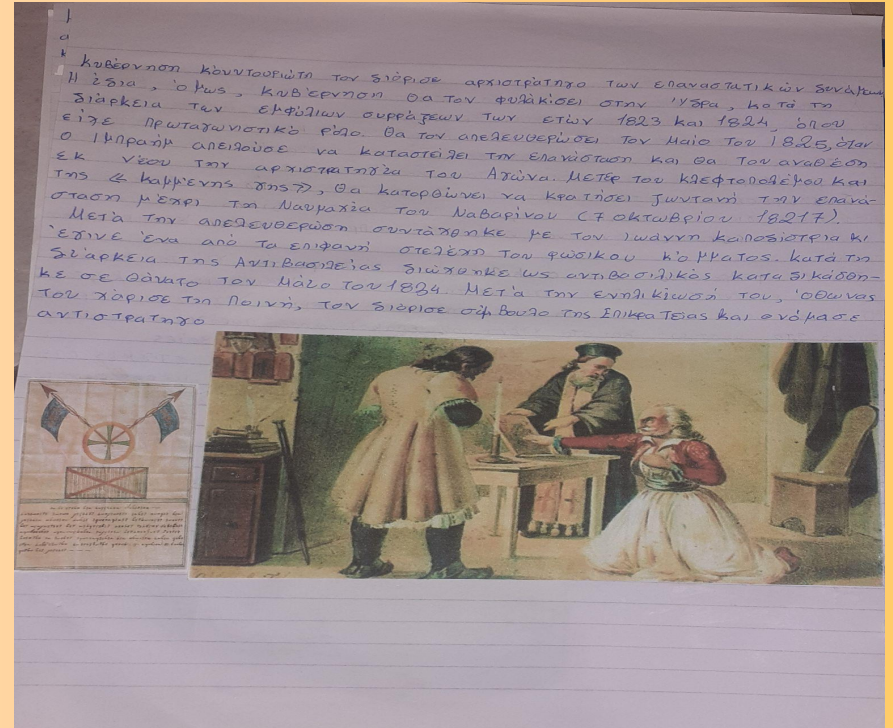 κυβέρνηση κουντουριώτη τον διόρισε αρχιστράτηγο των επαναστατικών δυνάμεων
Η ίδια, όμως, κυβέρνηση θα τον φυλακίσει στην Ύδρα, κατά τη
διάρκεια των εμφύλιων συρράξεων των ετών 1823 και 1824, όπου
είχε πρωταγωνιστικό ρόλο. Θα τον απελευθερώσει τον Μαίο του 1825, όταν
ο Ιμπραήμ απειλούσε να καταστείλει την επανάσταση και θα του αναθέση
εκ νέου την αρχιστρατηγία του Αγώνα. Μετέρ του κλεφτοπολέμου και
της « καμμένης γης», θα κατορθώνει να κρατήσει ζωντανή την επανά-
σταση μέχρι τη Ναυμαχία του Ναβαρίνου (7 οκτωβρίου 18217).
Μετά την απελευθέρωση συντάχθηκε με τον Ιωάννη καποδίστρια κι
έγινε ένα από τα επιφανή στελέχη του ρωσικού κόμματος. κατά τη
διάρκεια της Αντιβασιλείας διώχθηκε ως αντιβασιλικός καταδικάσθη-
κε σε θάνατο τον Μάιο του 1834. Μετά την ενηλικίωσή του, όθωνας
του χάρισε τη ποινή, τον διόρισε σύμβουλο της Επικρατείας και ονόμασε
αντιστράτηγο